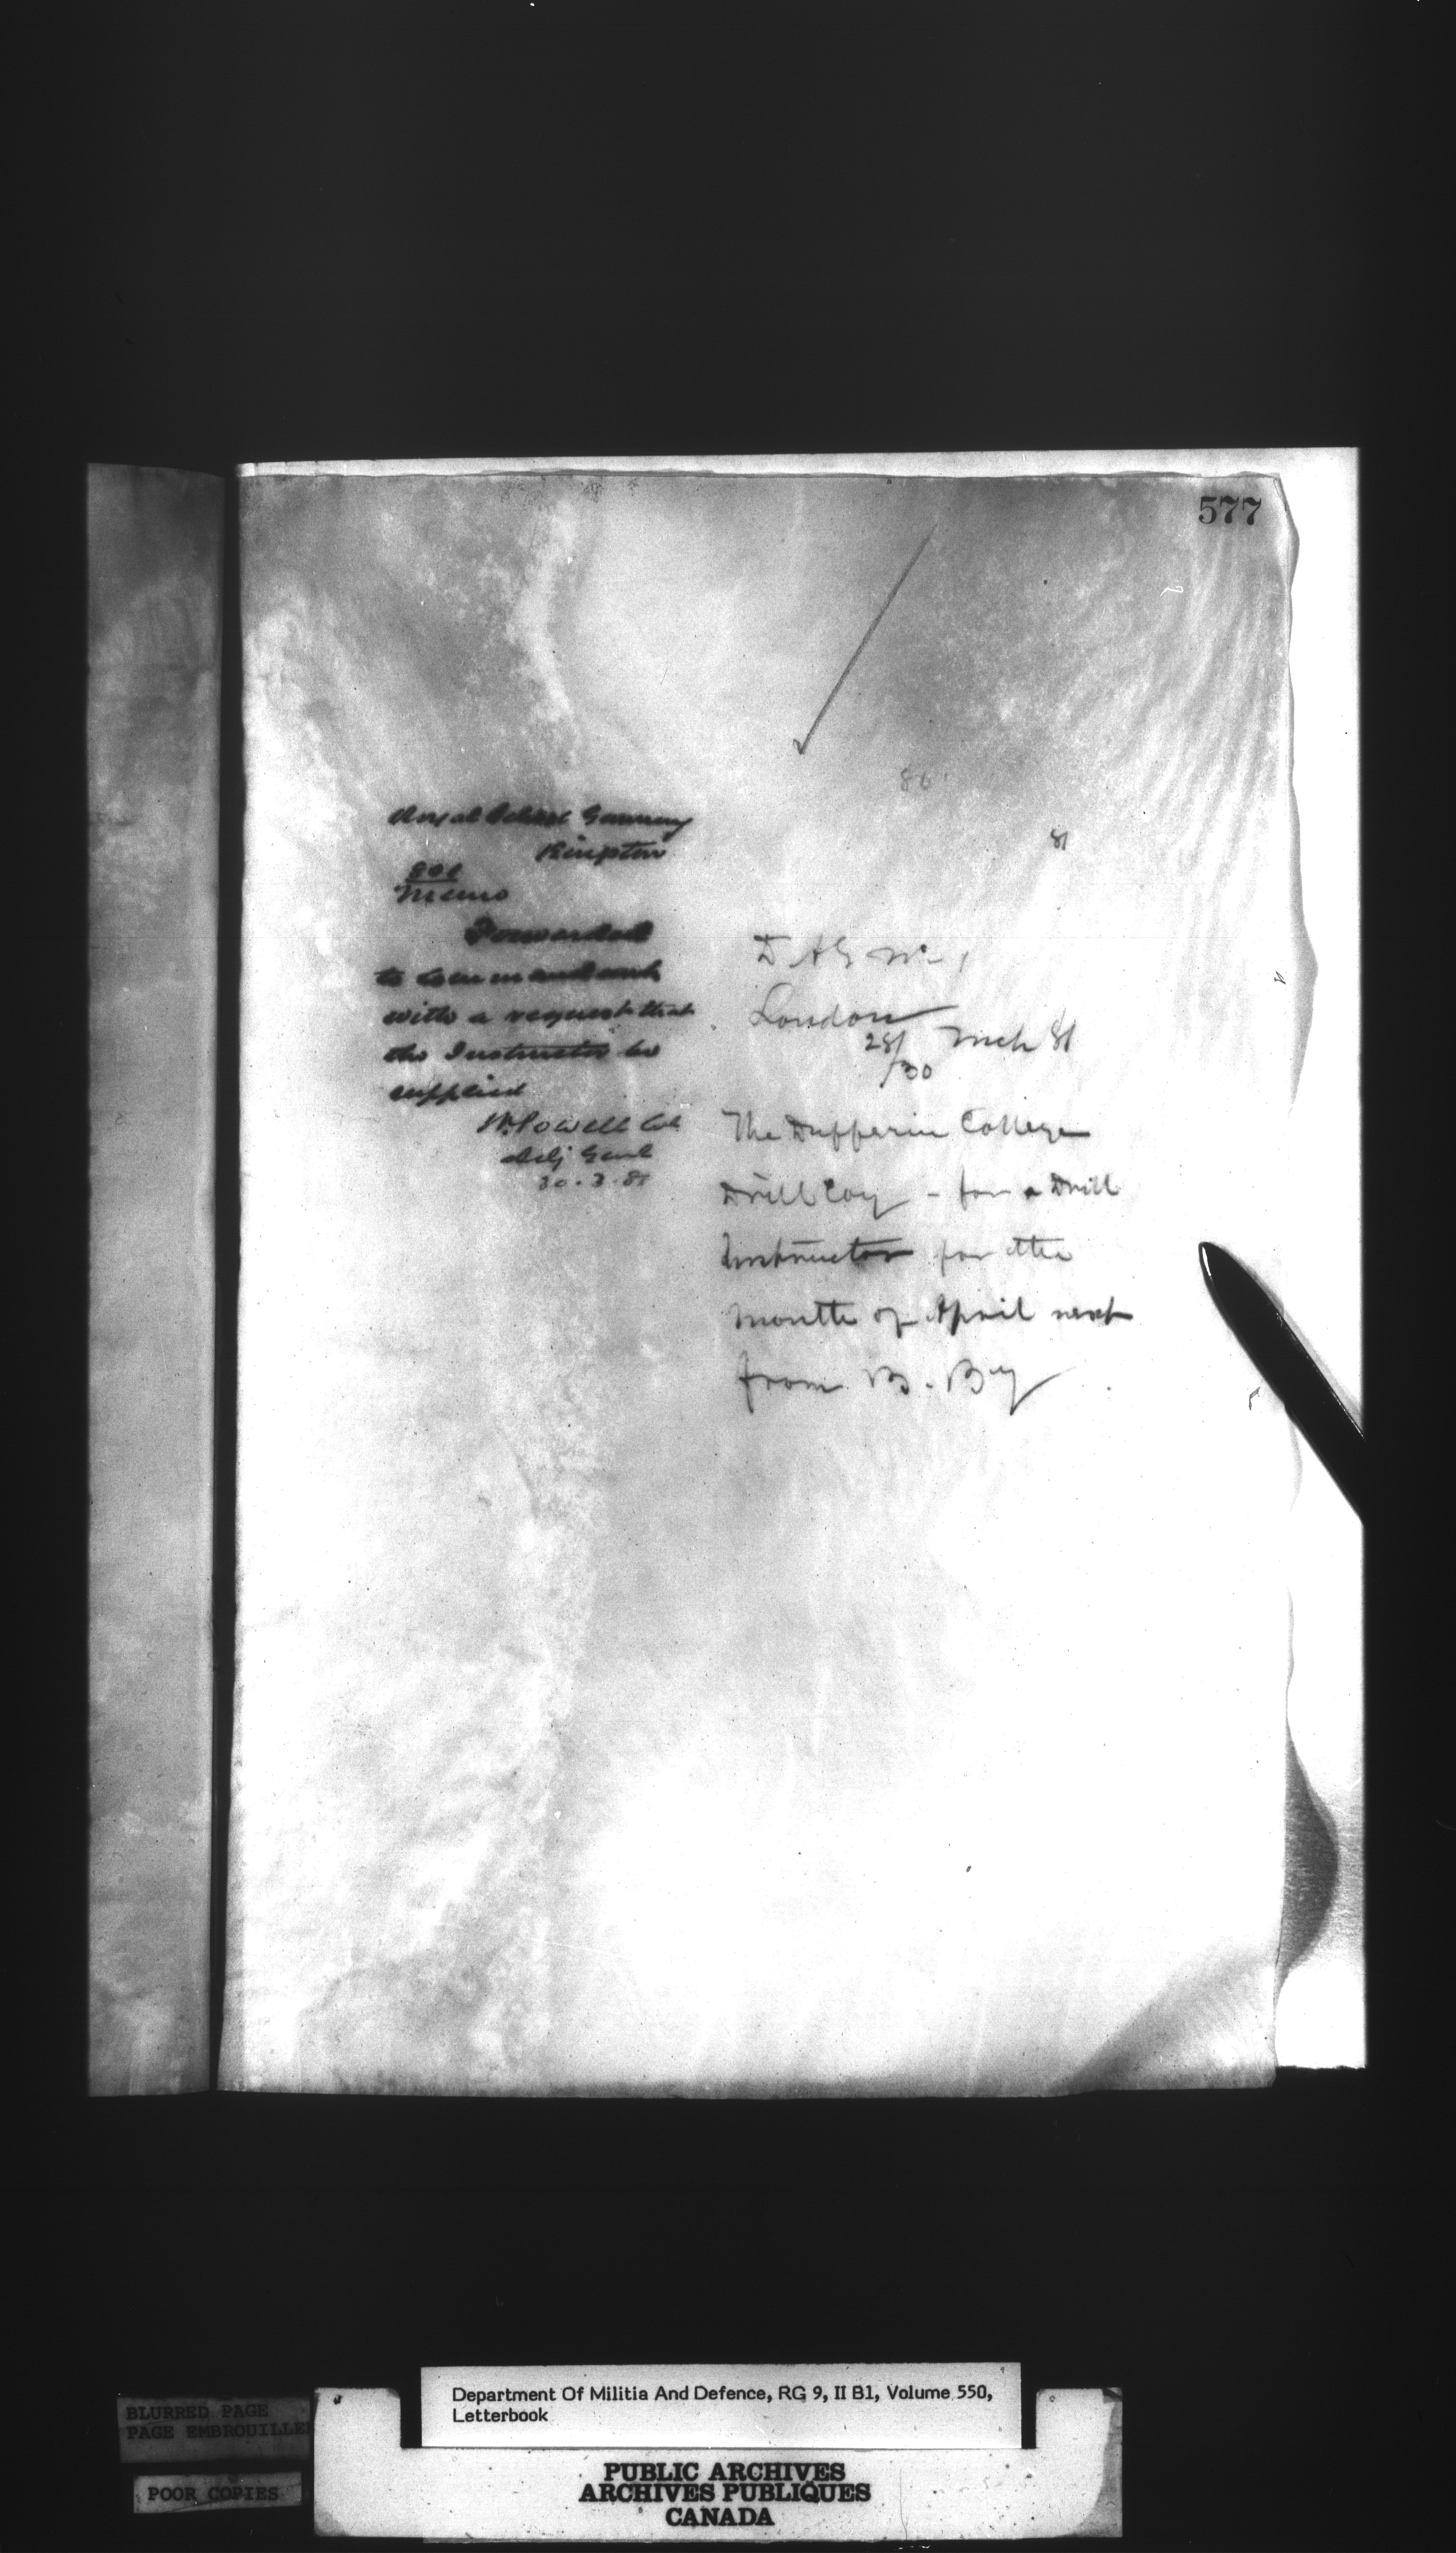 577
86
81
Royal School Gunnery
Kingston
Memo
Forwarded
to Commandant
with a request that
the Instructor be
supplied
W. Powell Col
Adj Genl
30.3.81
D A G No 1
London
28/30 Mch 81
The Dufferin College
Drill Coy - for a Drill
Instructor for the
month of April next
from B. By
Department Of Militia And Defence, RG 9, II B1, Volume 550,
Letterbook
BLURRED PAGE
PAGE EMBROUILLE
POOR COPIES
PUBLIC ARCHIVES
ARCHIVES PUBLIQUES
CANADA